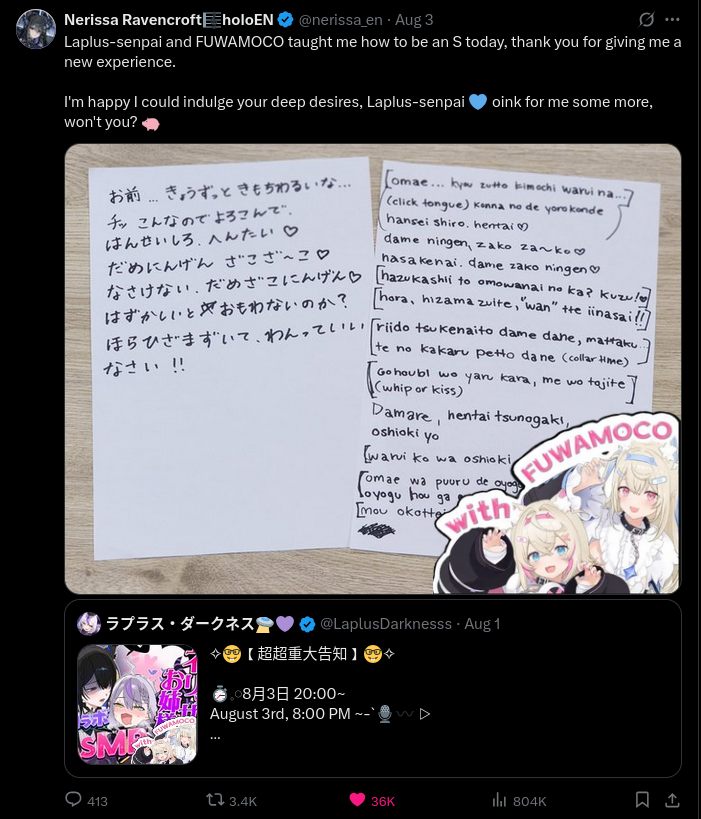 Nerissa Ravencroft🎼holoEN @nerissa_en · Aug 3
Laplus-senpai and FUWAMOCO taught me how to be an S today, thank you for giving me a
new experience.
I'm happy I could indulge your deep desires, Laplus-senpai 💙 oink for me some more,
won't you? 🐖
お前 … きょうずっと きもちわるいな…
チッ こんなのでよろこんで.
はんせいしろ. へんたい ♡
だめにんげん ざこざ〜こ ♡
なさけない. だめざこにんげん♡
はずかしいと おもわないのか?
ほらひざまずいて、わんっていい
なさい !!
[omae... kyou zutto kimochi warui na...]
(click tongue) konna no de yorokonde
hansei shiro. hentai♡
dame ningen, zako za~ko♡
nasakenai. dame zako ningen♡
[hazukashii to omowanai no ka? kuzu!♡]
[hora, hizama zuite, "wan" tte iinasai!!]
[riido tsukenaito dame dane, mattaku...
te no kakaru petto dane (collar time)]
[Gohoubi wo yaru kara, me wo tojite
(whip or kiss)]
Damare, hentai tsunogaki,
oshioki yo
[warui ko wa oshioki
[omae wa puuru de oyog
oyogu hou ga
[mou okotta
with FUWAMOCO
ラプラス・ダークネス🛸💜 @LaplusDarknesss · Aug 1
✧🤓【 超超重大告知 】🤓✧
⏱️8月3日 20:00~
August 3rd, 8:00 PM ~-`🎙️ 〰 ▷
...
お姉
ラボ
SM
with FUWAMOCO
413 3.4K 36K 804K